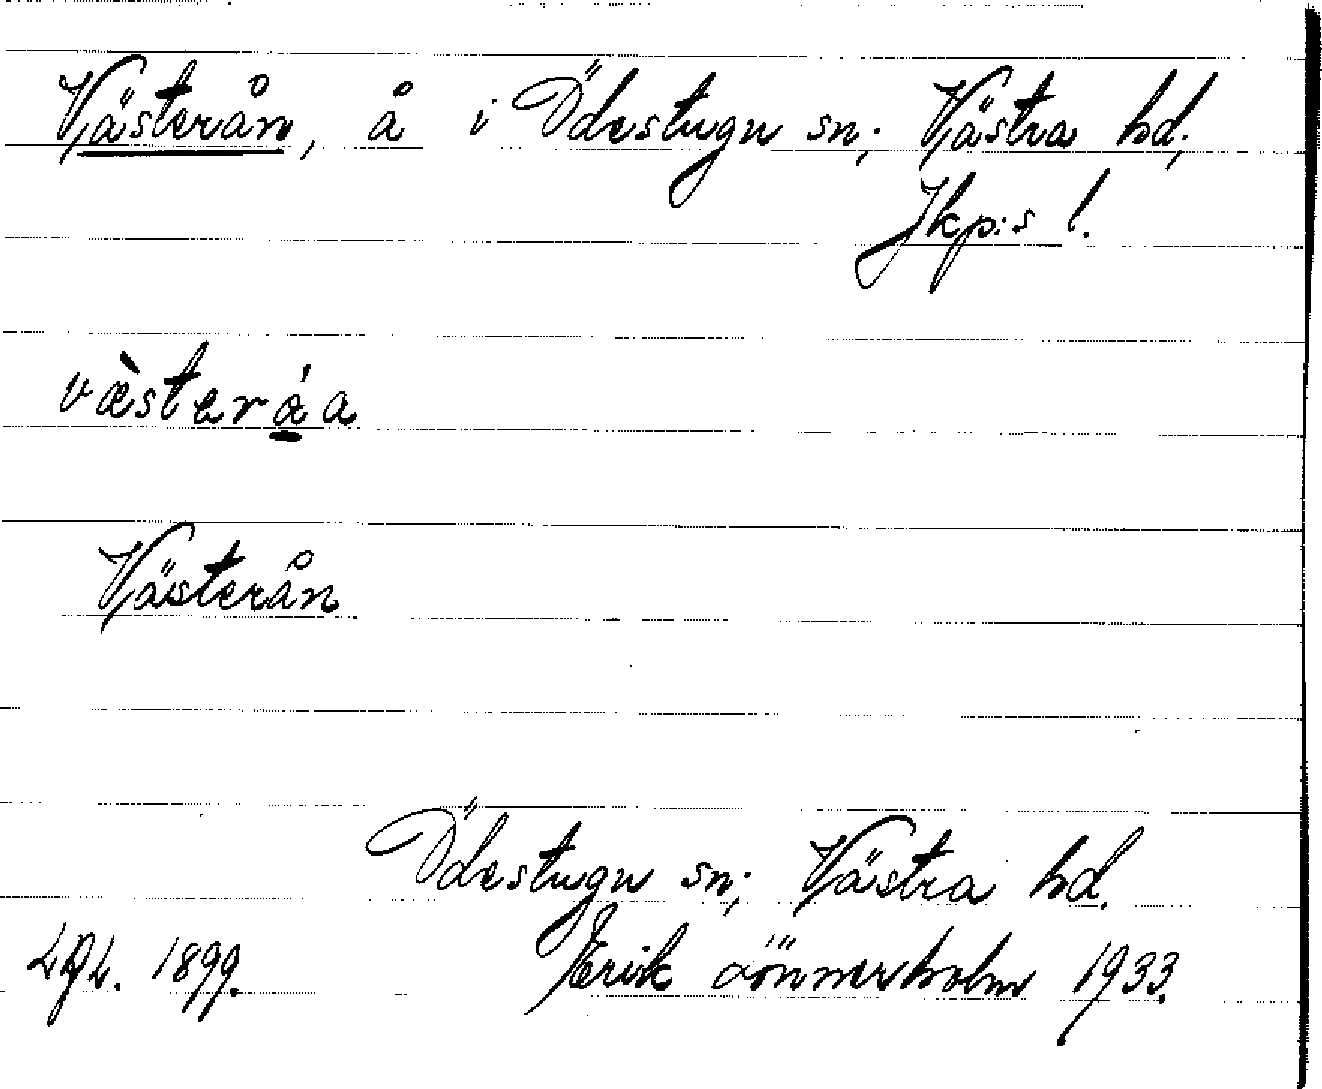 Västerån, å i Ödestugu sn; Västra hd;
Jkp:s l.
vɛ̀sterá̱a
Västerån
Ödestugu sn; Västra hd.
1899. Erik Lönnerholm 1933.